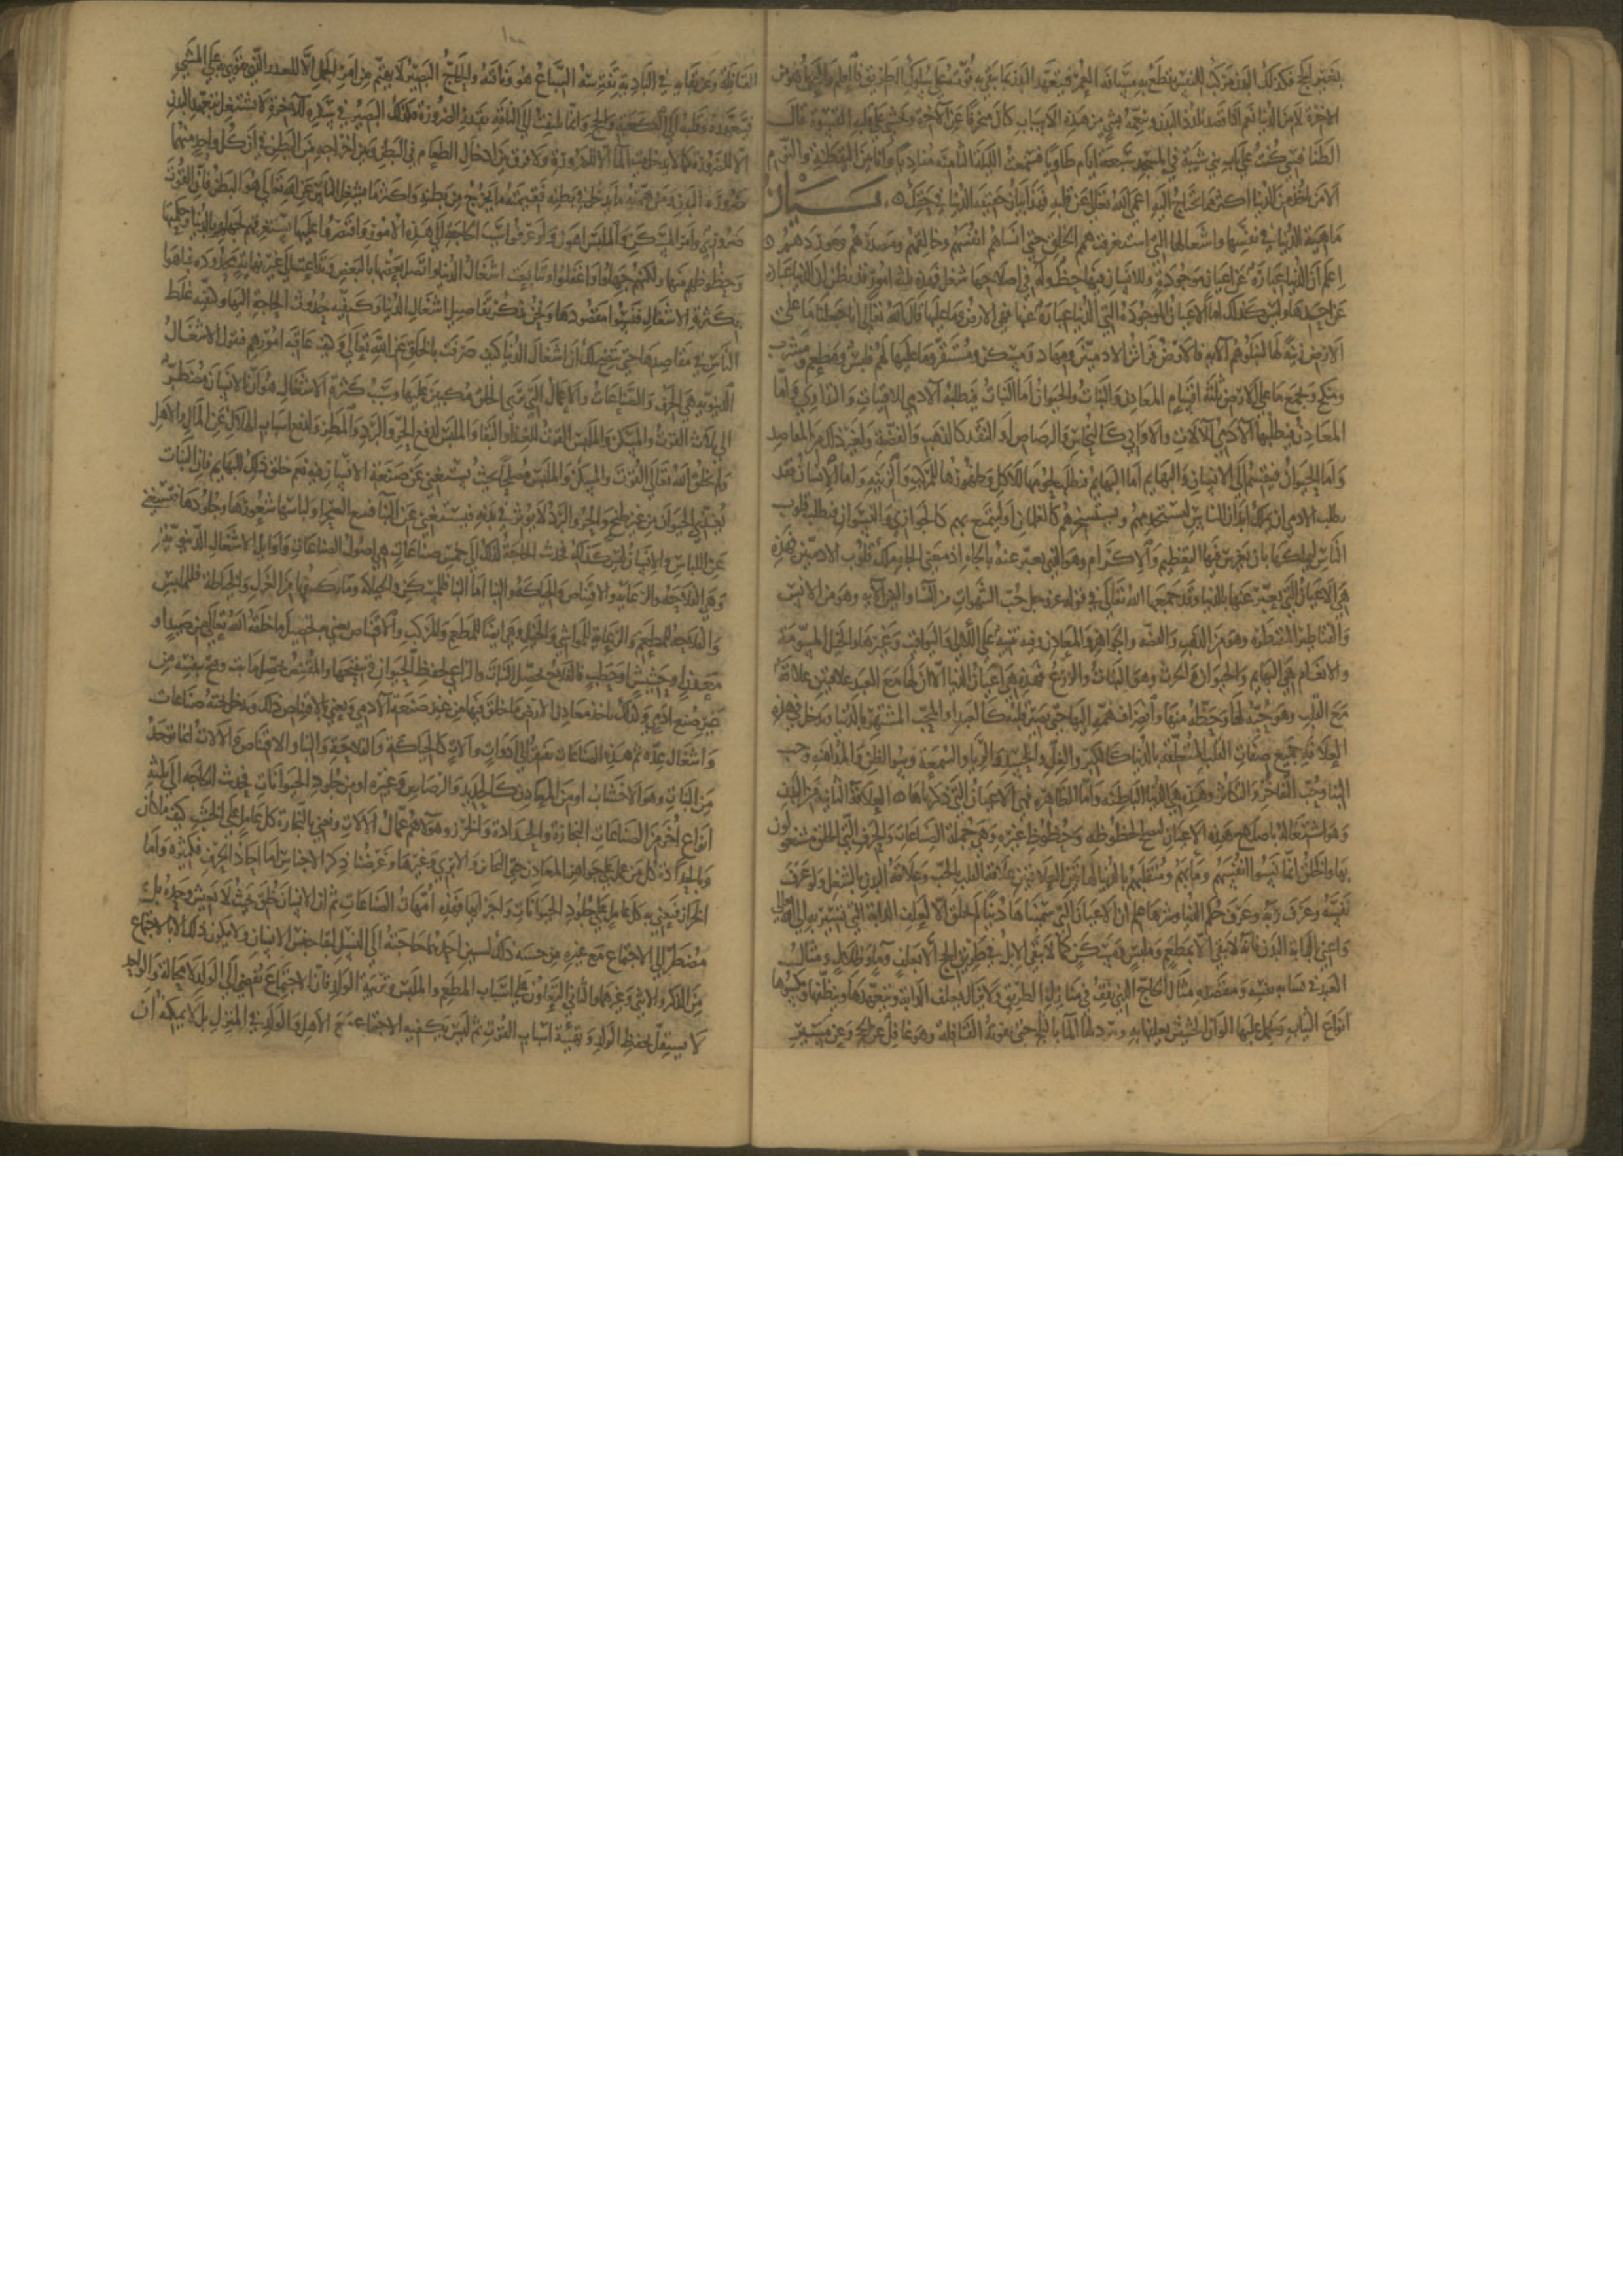 يعتبر الحج فكذلك البدن مركب للنفس يقطع به مسافة العمر فيتعهد البدن بما يبقي به قوته على سلوك الطريق بالعلم والعمل هو من
الاخرة لا من الدنيا نعم اذا قصد تلذذ البدن وتنعمه بشي من هذه الاسباب كان منحرفا عن الاخرة ويخشى على قلبه القسوة قال
الطنافسي كنت على باب بني شيبة في المسجد سبعة ايام طاويا فسمعت الليلة الثامنة مناديا وانا بين اليقظة والنوم
الا من اخذ من الدنيا اكثر مما يحتاج اليه اعمى الله تعالى عين قلبه فهذا بيان حقيقة الدنيا في حقك بيان
ماهية الدنيا في نفسها واشغالها التي استغرقت همم الخلق حتى انساهم انفسهم وخالقهم ومصدرهم وموردهم
اعلم ان الدنيا عبارة عن اعيان موجودة وللانسان فيها حظ وله في اصلاحها شغل فهذه ثلثة امور قد يظن ان الدنيا عبارة
عن احدها وليس كذلك اما الاعيان الموجودة التي الدنيا عبارة عنها فهي الارض وما عليها قال الله تعالى انا جعلنا ما على
الارض زينة لها لنبلوهم الاية فالارض فراش للادميين ومهاد ومسكن ومستقر وما عليها لهم ملبس ومطعم ومشرب
ومنكح ويجمع ما على الارض ثلثة اقسام المعادن والنبات والحيوان اما النبات فيطلبه الادمي للاقتيات والتداوي واما
المعادن فيطلبها الادمي للالات والاواني كالنحاس والرصاص او للنقد كالذهب والفضة ولغير ذلك من المقاصد
واما الحيوان فينقسم الى الانسان والبهايم اما البهايم فتطلب لحومها للاكل وظهورها للمركب والزينة واما الانسان فقد
يطلب الادمي ان يملك ابدان الناس ليستخدمهم ويستسخرهم كالغلمان او ليتمتع بهم كالجواري والنسوان ويطلب قلوب
الناس ليملكها بان يغرس فيها التعظيم والاكرام وهو الذي يعبر عنه بالجاه اذ معنى الجاه ملك قلوب الادميين فهذه
هي الاعيان التي يعبر عنها بالدنيا وقد جمعها الله تعالى في قوله عز وجل حب الشهوات من النسا والبنين الاية وهو من الانس
والقناطير المقنطرة وهو من الذهب والفضة والجواهر والمعادن وفيه تنبيه على اللالي واليواقيت وغيرها والخيل المسومة
والانعام هي البهايم والحيوان والحرث وهو النبات والزرع فهذه هي اعيان الدنيا الا ان لها مع العبد علاقتين علاقة
مع القلب وهو حبه لها وحظه منها وانصراف همه اليها حتى يصير قلبه كالعبد او المحب المستهتر بالدنيا ويدخل في هذه
العلاقة جميع صفات القلب المتعلقة بالدنيا كالكبر والغل والحسد والريا والسمعة وسو الظن والمداهنة وحب
الثنا وحب التفاخر والتكاثر وهذه هي الدنيا الباطنة واما الظاهرة فهي الاعيان التي ذكرناها العلاقة الثانية مع البدن
وهو اشتغاله باصلاح هذه الاعيان لتصلح لحظوظه وحظوظ غيره وهي جملة الصناعات والحرف التي الخلق مشغولون
بها والخلق انما نسوا انفسهم ومابهم ومنقلبهم بالدنيا لهاتين العلاقتين علاقة القلب بالحب وعلاقة البدن بالشغل ولو عرف
نفسه وعرف ربه وعرف حكم الدنيا وسرها علم ان الاعيان التي سميناها دنيا لم تخلق الا لعلف الدابة التي يسير به الى الله تعالى
واعني بالدابة البدن فانه لا يبقى الا بمطعم وملبس ومسكن كما لا يبقى الابل في طريق الحج الا بعلف وما وظلال ومثال
العبد في نسيانه نفسه ومقصده مثال الحاج الذي يقف في منازل الطريق ولا يزال يعلف الدابة ويتعهدها وينظفها ويكسوها
انواع الثياب ويحمل عليها الوان الحشيش يعلفها به ويبرد لها الما بالثلج حتى تفوته القافلة وهو غافل عن الحج وعن مسير
القافلة وعن بقايه في البادية تفترسه السباع هو وناقته والحاج البصير لا يهتم من امر الجمل الا للقدر الذي يقوى به على المشي
فيتعهده وقلبه الى الكعبة والحج وانما يلتفت الى الناقة بقدر الضرورة فكذلك البصير في سفره للاخرة لا يشتغل بتعهد البدن
الا للضرورة كما لا يدخل بيت الما الا للضرورة ولا فرق بين ادخال الطعام في البطن وبين اخراجه من البطن في ان كل واحد منهما
ضرورة البدن ومن همته ما يدخل في بطنه فقيمته ما يخرج من بطنه واكثر ما يشغل الناس عن الله تعالى هو البطن فان القوت
ضروري وامر المسكن والملبس اهون ولو عرفوا سبب الحاجة الى هذه الامور واقتصروا عليها لم يستغرقهم لجهلهم بالدنيا وحكمتها
وحظوظهم منها ولكنهم جهلوا وغفلوا وتتابعت اشغال الدنيا واتصل بعضها بالبعض وتداعت الى غير نهاية محدودة فتاهوا
بكثرة الاشغال فنسوا مقصودها ونحن نذكر تفاصيل اشغال الدنيا وكيفية حدوث الحاجة اليها وكيفية غلط
الناس في مقاصدها حتى يتضح لك ان اشغال الدنيا كيف صرفت الخلق عن الله تعالى وكيف عاقبة امورهم فنقول الاشغال
الدنيوية هي الحرف والصناعات والاعمال التي ترى الخلق مكبين عليها وسبب كثرة الاشغال هو ان الانسان مضطر
الى ثلاث القوت والمسكن والملبس القوت للغذا والبقا والملبس لدفع الحر والبرد والمسكن ولدفع اسباب الهلاك عن المال والاهل
ولم يخلق الله تعالى القوت والمسكن والملبس مصلحا بحيث يستغني عن صنعة الانسان فيه نعم خلق ذلك للبهايم فان النبات
يغذي الحيوان من غير طبخ والحر والبرد لا يوثر في بدنه فيستغني عن البنا فيقنع بالصحرا ولباسها شعورها وجلودها فتستغني
عن اللباس والانسان ليس كذلك فحدث الحاجة لذلك الى خمس صناعات هي اصول الصناعات واوايل الاشغال الدنيوية
وهي الفلاحة والرعاية والاقتناص والحياكة والبنا اما البنا فللمسكن والحياكة وما يكتنفها من الغزل والخياطة فللملبس
والفلاحة للمطعم والرعاية للمواشي والخيل وهي ايضا للمطعم والمركب والاقتناص نعني به تحصيل ما خلقه الله تعالى من صيد او
معدن او حشيش او حطب فالفلاح يحصل النبات والراعي يحفظ الحيوان ويستنتجها والمقتنص يحصل ما نبت ونتج بنفسه من
غير صنع ادمي وكذلك ياخذ معادن الارض ما خلق فيها من غير صنعة الادمي ونعني بالاقتناص ذلك ويدخل تحته صناعات
واشغال عدة ثم هذه الصناعات تفتقر الى ادوات والات كالحياكة والفلاحة والبنا والاقتناص والالات انما تؤخذ
من النبات وهو الاخشاب او من المعادن كالحديد والرصاص وغيره او من جلود الحيوانات فحدث الحاجة الى ثلثة
انواع اخر من الصناعات النجارة والحدادة والخرز وهولا هم عمال الالات ونعني بالنجارة كل عامل على الخشب كيف ما كان
وبالحداد كل من عمل على جواهر المعادن حتى النحاس والابري وغيرها وغرضنا ذكر الاجناس اما احاد الحرف فكثيرة واما
الخراز فنعني به كل عامل على جلود الحيوانات واجزايها فهذه امهات الصناعات ثم ان الانسان خلق بحيث لا يعيش وحده بل
مضطر الى الاجتماع مع غيره من جنسه وذلك لسببين احدهما حاجته الى النسل لبقا جنس الانسان ولا يكون ذلك الا باجتماع
من الذكر والانثى وغيرهما والثاني التعاون على اسباب المطعم والملبس وتربية الولد فان الاجتماع يفضي الى الولد لا محالة والواحد
لا يستقل بحفظ الولد وتهيئة اسباب القوت ثم ليس يكفيه الاجتماع مع الاهل والولد في المنزل بل لا يمكنه ان